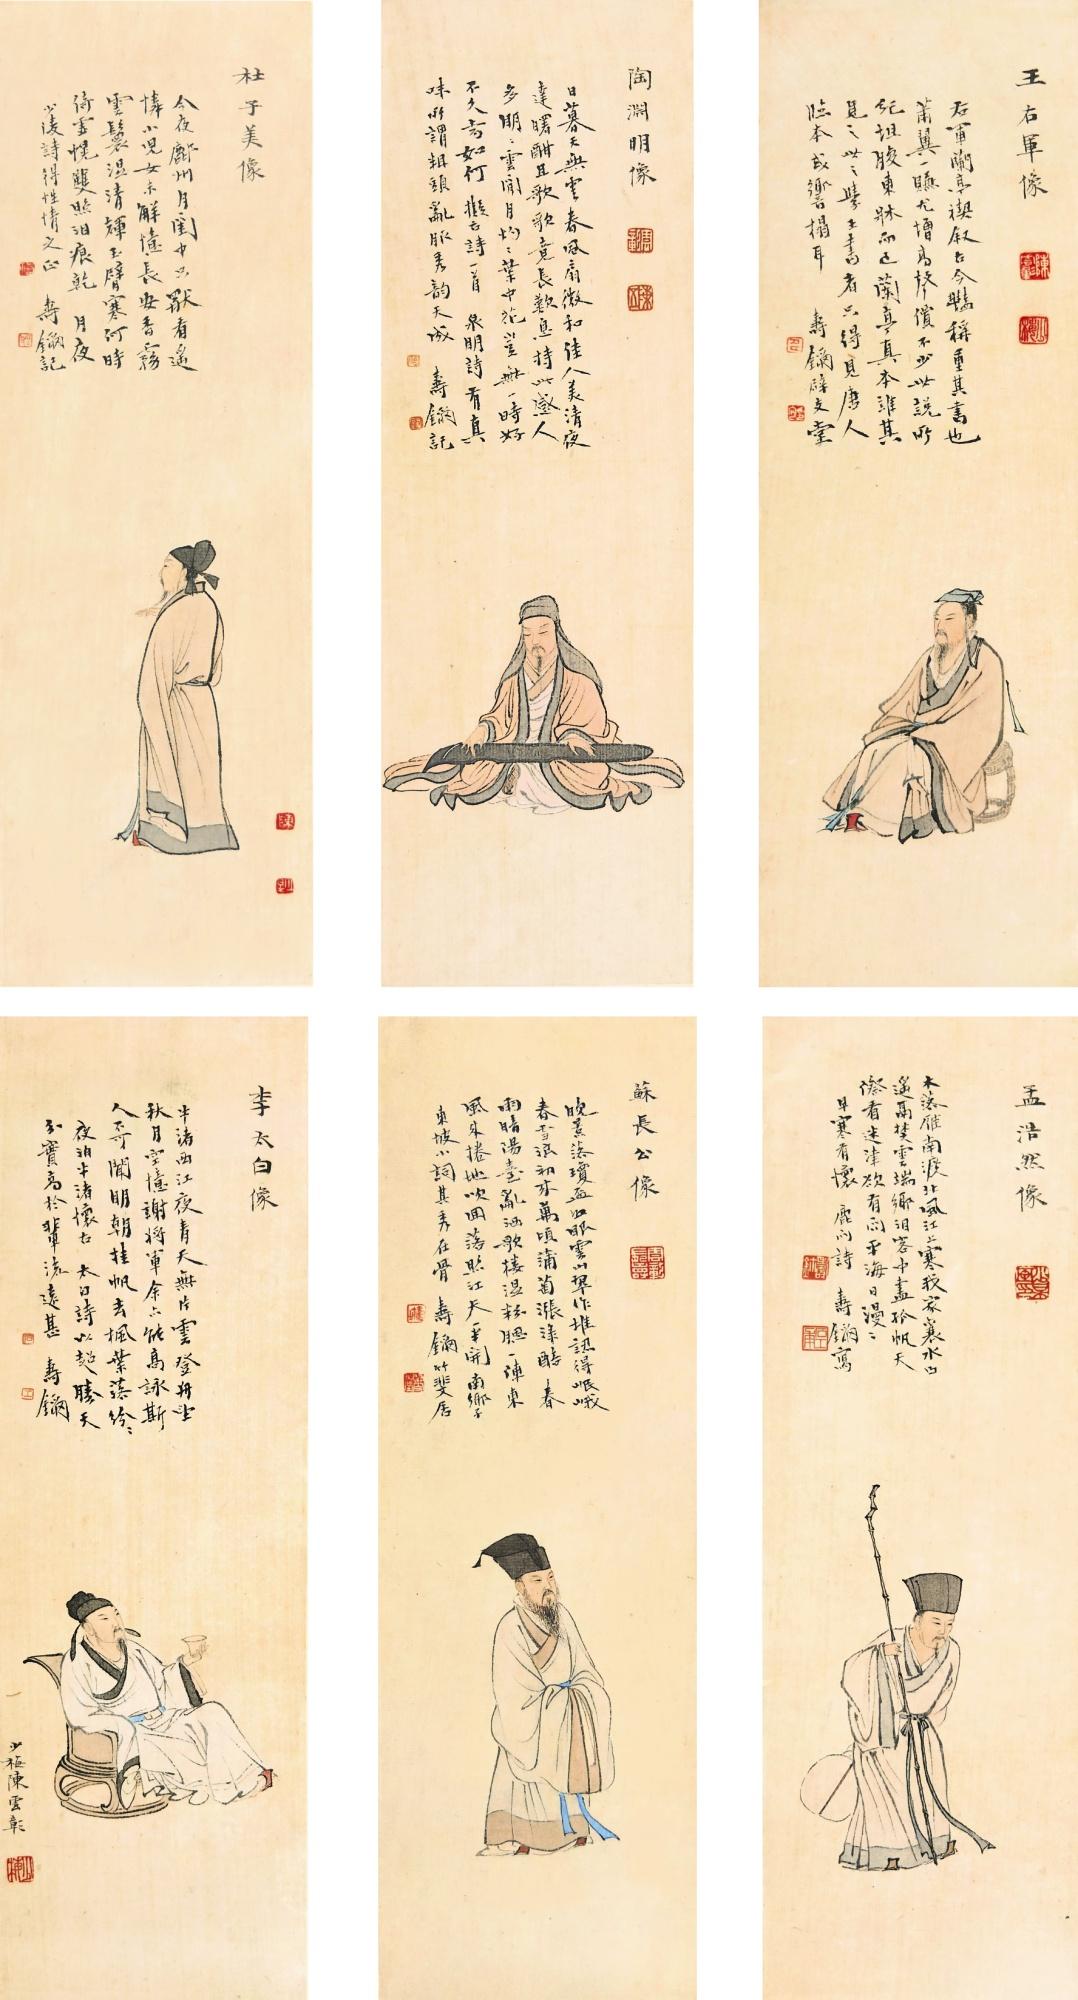 王右軍像
右軍蘭亭禊叙古今臨稱重其書也
蕭翼一賺尤增高聲價不少世說所
見之世之學王書者只得見唐人
臨本或響搨耳
壽鏞
陶淵明像
日暮天無雲春風扇微和佳人美清夜
達曙酣且歌歌竟長歎息持此感人
多明明雲間月灼灼葉中花豈無一時好
不久當如何 擬古詩一首 泉明詩有真
味所謂粗頭亂服秀韵天成
壽鏞記
杜子美像
今夜鄜州月閨中只獨看遥
憐小兒女未解憶長安香霧
雲鬟湿清輝玉臂寒何時
倚虚幌雙照泪痕乾 月夜
少陵詩得性情之正 壽鏞記
孟浩然像
木落雁南渡北風江上寒我家襄水曲
遥隔楚雲端鄉泪客中盡孤帆天
際看迷津欲有問平海日漫漫
早寒有懷 鹿門詩 壽鏞寫
蘇長公像
晚景落瓊杯照眼雲山翠作堆認得岷峨
春雪浪初來萬頃蒲萄漲渌醅 春
雨暗陽臺亂洒歌樓湿粉腮一陣東
風來捲地吹回落照江天一半開 南鄉子
東坡小詞其秀在骨 壽鏞
李太白像
牛渚西江夜青天無片雲登舟望
秋月空憶謝將軍余亦能高詠斯
人不可聞明朝挂帆去楓葉落紛紛
夜泊牛渚懷古 太白詩以超勝天
分實高於輩流遠甚 壽鏞
少梅陳雲彰